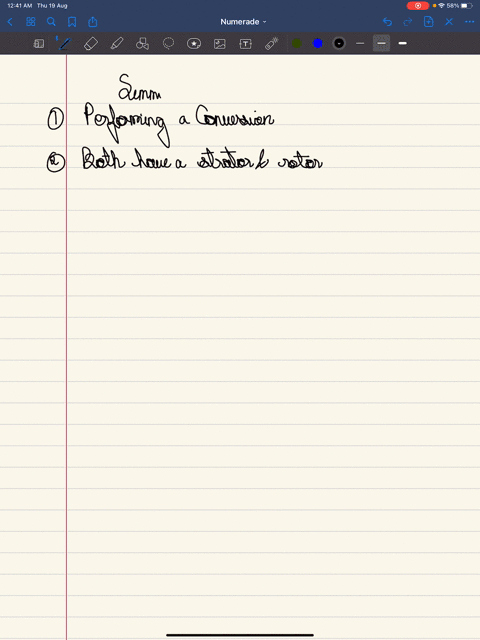 12:41 AM Thu 19 Aug
58%
Numerade
Simm
① Performing a Conversion
② Both have a strator & rotor